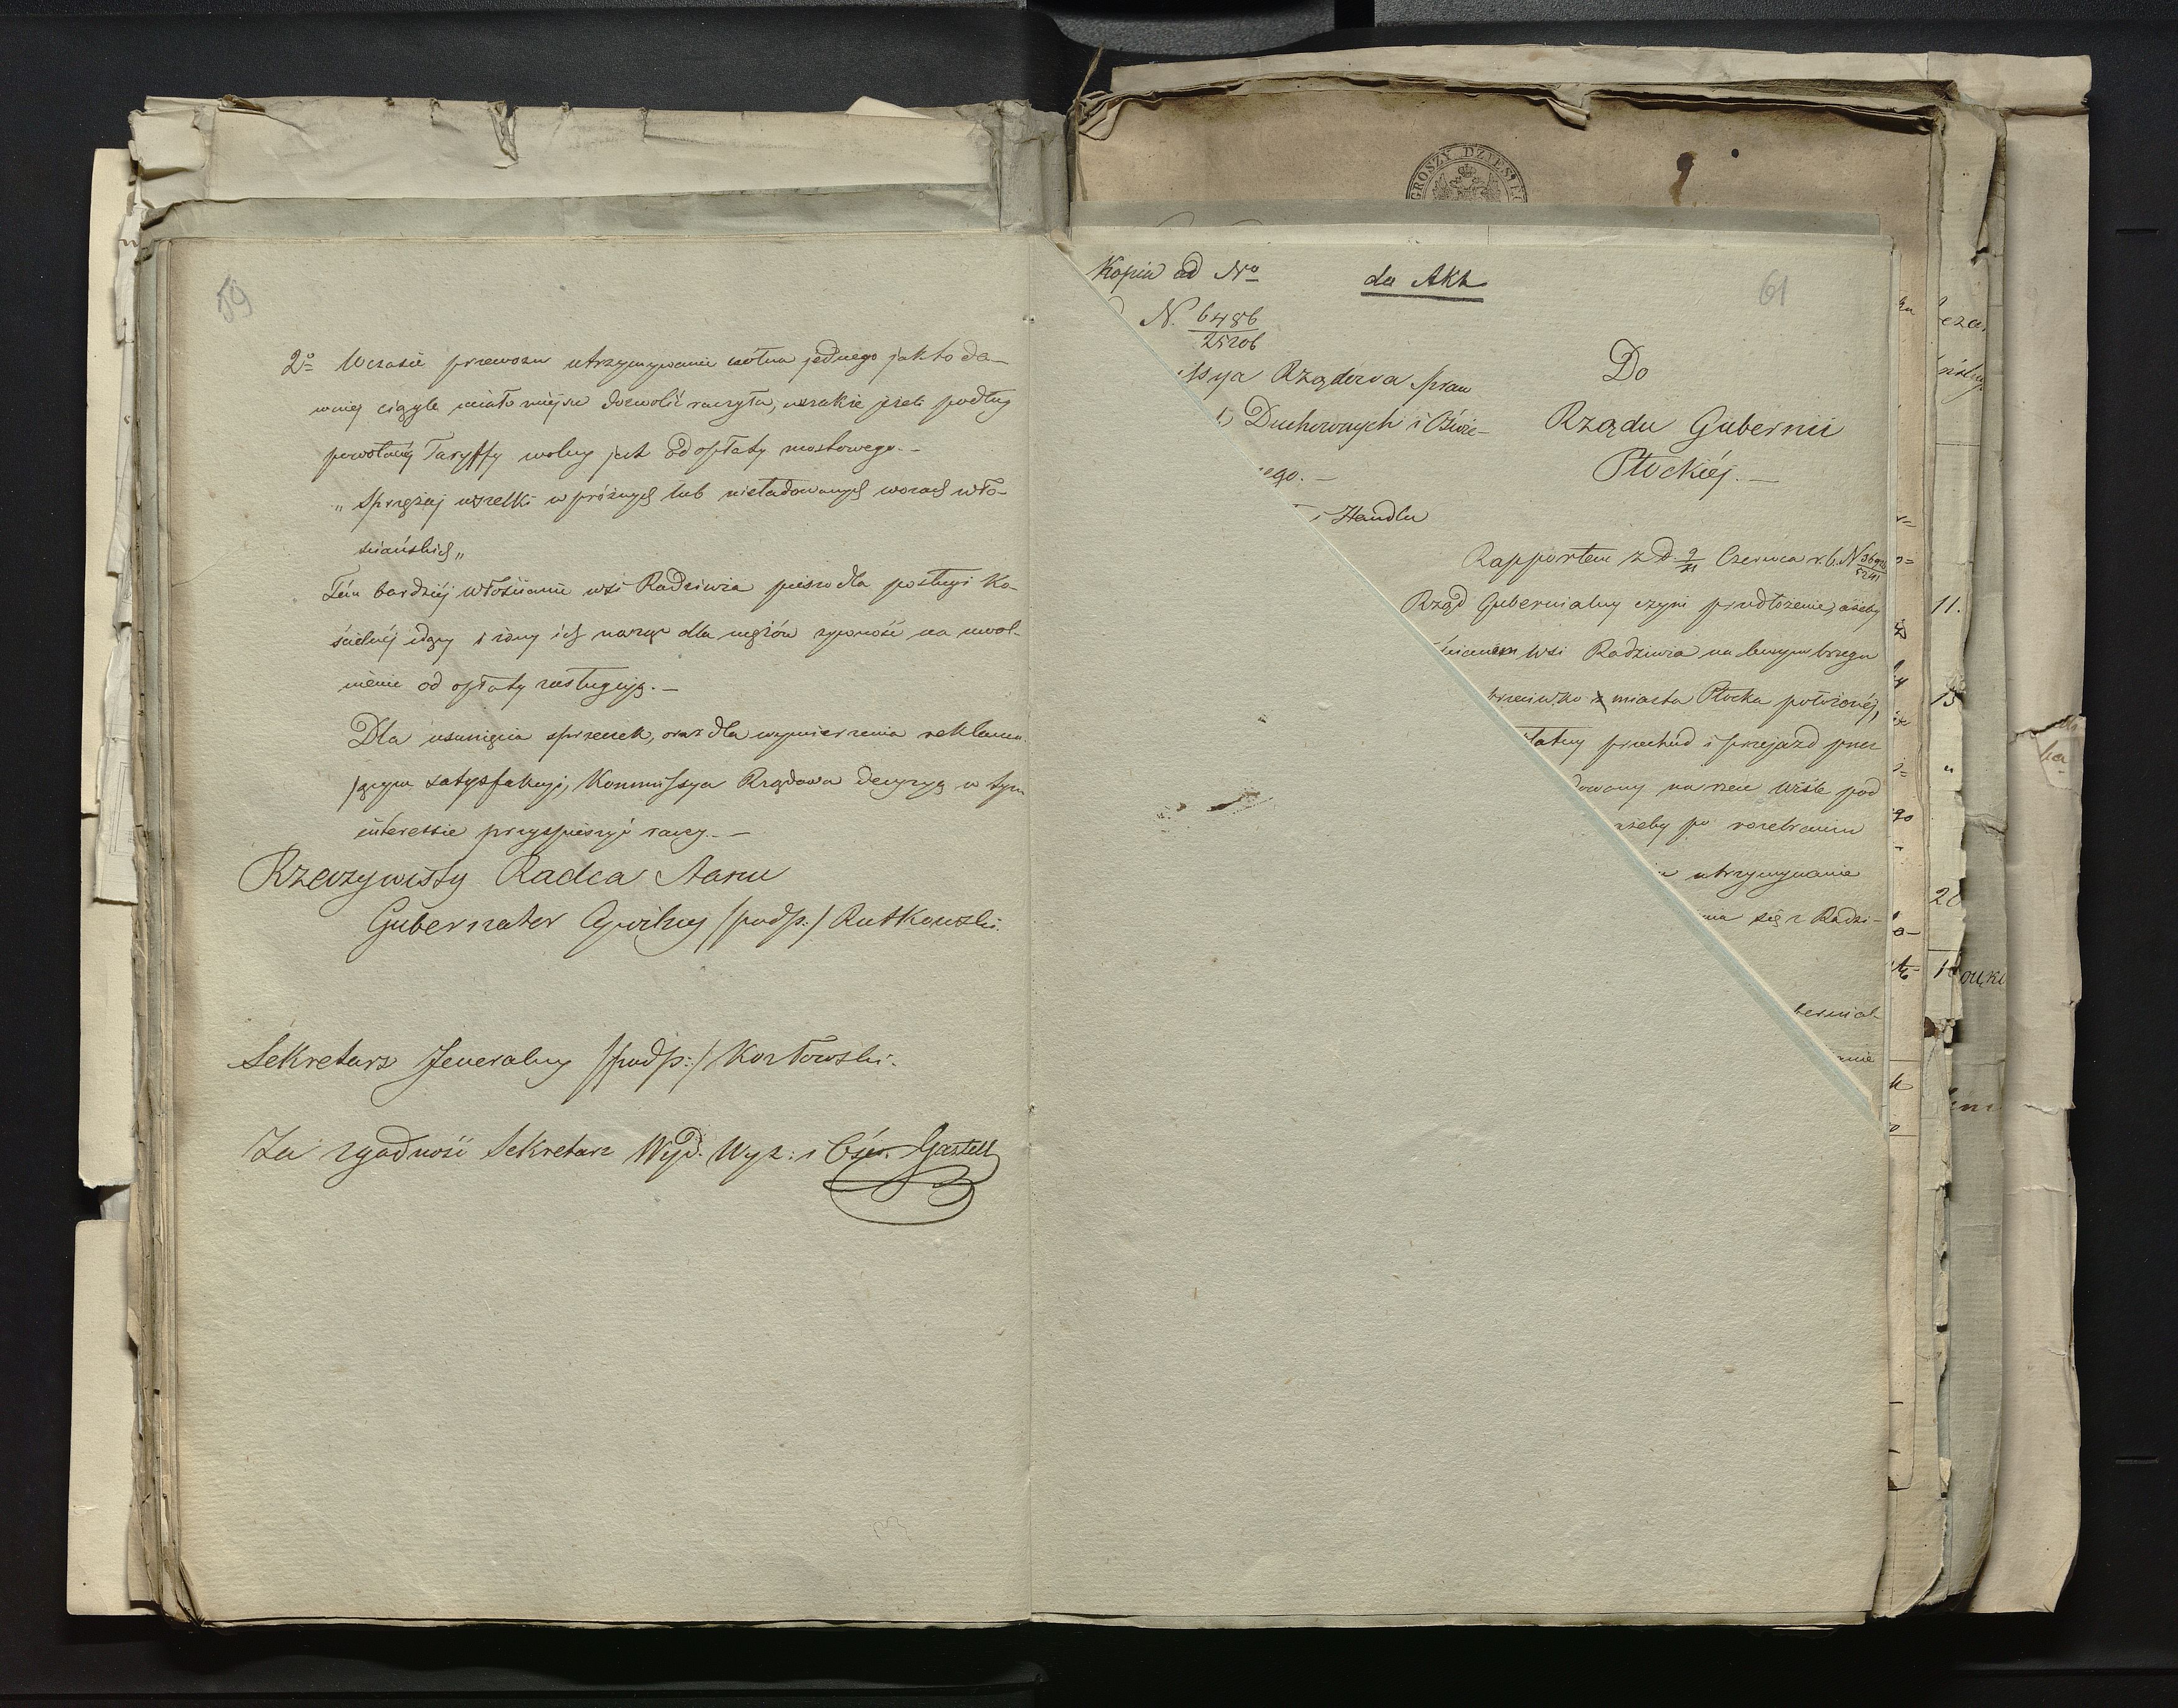 59
2o Wczasie przewozu utrzymywanie czółna jednego jak to da-
wniej ciągle miało miejsce dozwolić raczyła, wszakże jeżeli podług
powołanéj Taryffy wolny jest od opłaty mostowego. -
„Sprzężaj wszelki w próżnych lub nieładownych wozach wło-
ściańskich„
Tém bardziéj Włościanie wsi Radziwia pieszo dla posługi Ko-
ścielnéj idący i żony ich niosące dla mężów żywność na uwol-
nienie od opłaty zasługują. -
Dla usunięcia sprzeczek, oraz dla wymierzenia reklamu-
jącym satysfakcyi, Kommissya Rządowa decyzyą w tym
interessie przyspieszyć raczy. -
Rzeczywisty Radca Stanu
Gubernator Cywilny /podp:/ Rutkowski.
Sekretarz Jeneralny /podp:/ Kozłowski.
Za zgodność Sekretarz Wyd. Wyz: i Ośw. Gastell
GROSZY DZIESIĘĆ
Kopia ad No
do Akt
61
N. 6486
25206
ssya Rządowa Spraw
Duchownych i Oświe-
ego. -
i Handlu
Do
Rządu Gubernii
Płockiéj. -
Rapportem z d. 9/21 Czerwca r. b. N
Rząd Gubernialny czyni przedłożenie, ażeby
ścianom wsi Radziwia na lewym brzegu
przeciwko miasta Płocka położonéj,
płatny przechód i przejazd przez
dowany na rzece Wiśle pod
ażeby po rozebraniu
utrzymywanie
nia się z Radzi-
bernial-
anie